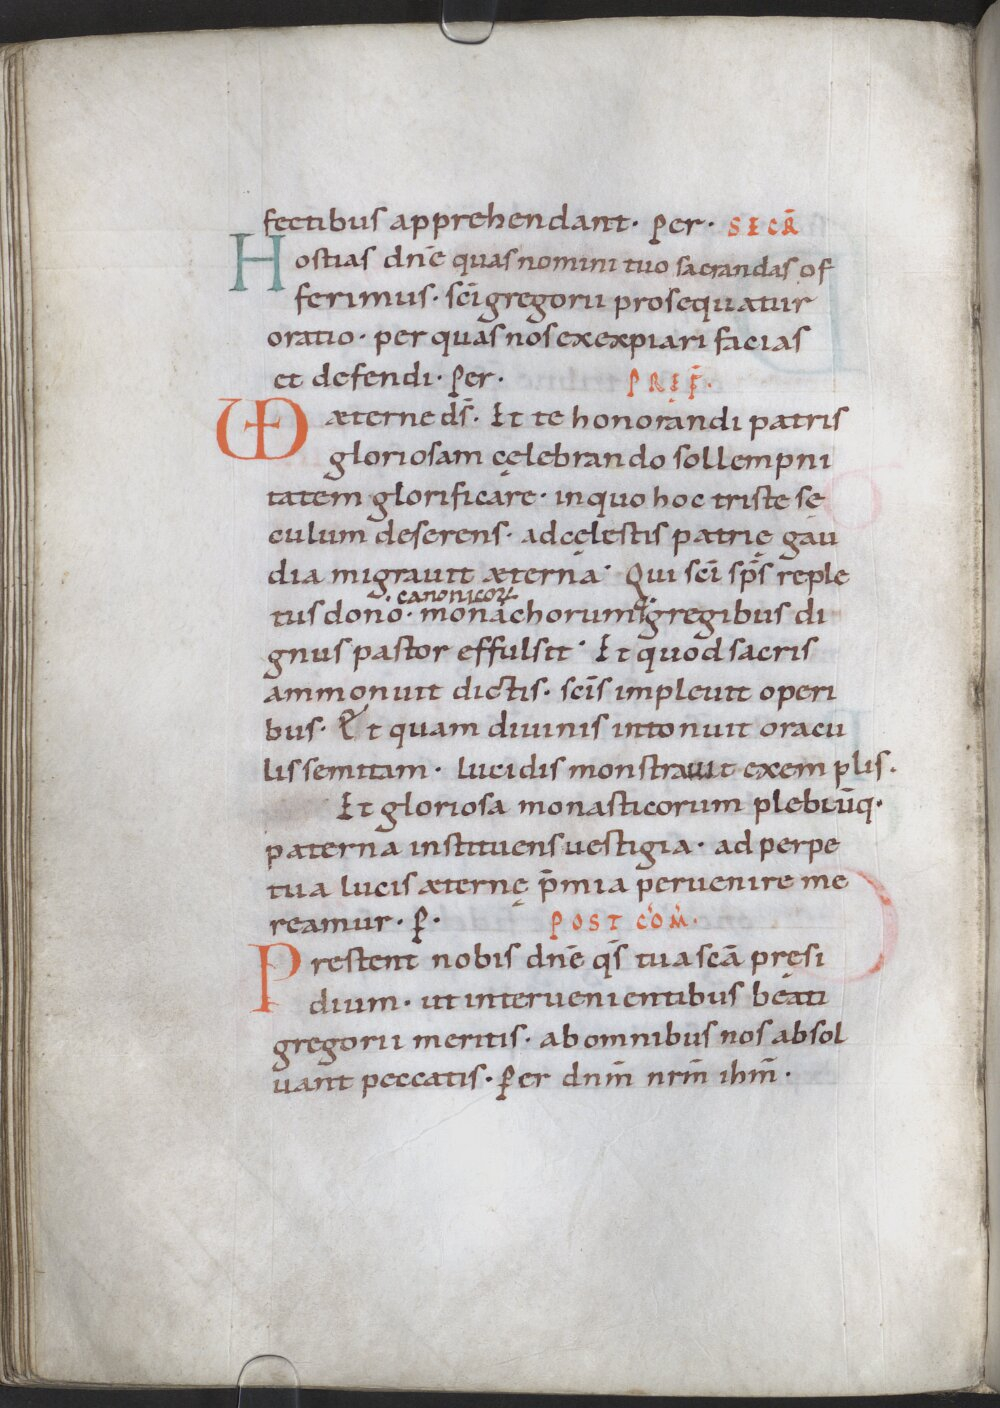 fectibus apprehendant· Per· SECR̄
Hostias dn̄e quas nomini tuo sacrandas of
ferimus· sc̄i gregorii prosequatur
oratio· per quas nos exexpiari facias
et defendi· Per· PREF̄·
VD æterne ds̄· Et te honorandi patris
gloriosam cęlebrando sollempni
tatem glorificare· in quo hoc triste se
culum deserens· ad cęlestis patrię gau
dia migrauit æterna· Qui sc̄i sp̄s reple
·canonicoꝝ
tus dono· monachorum q· gregibus di
gnus pastor effulsit· Et quod sacris
ammonuit dictis· sc̄is impleuit operi
bus· Et quam diuinis intonuit oracu
lis semitam· lucidis monstrauit exemplis·
Et gloriosa monasticorum plebiūq·
paterna instituens uestigia· ad perpe
tua lucis æternę p̄mia peruenire me
reamur· P̲· POST COM̄·
Prestent nobis dn̄e qs̄ tua scā pręsi
dium· ut interuenientibus beati
gregorii meritis· ab omnibus nos absol
uant peccatis· Per dnm̄ nrm̄ ihm̄·